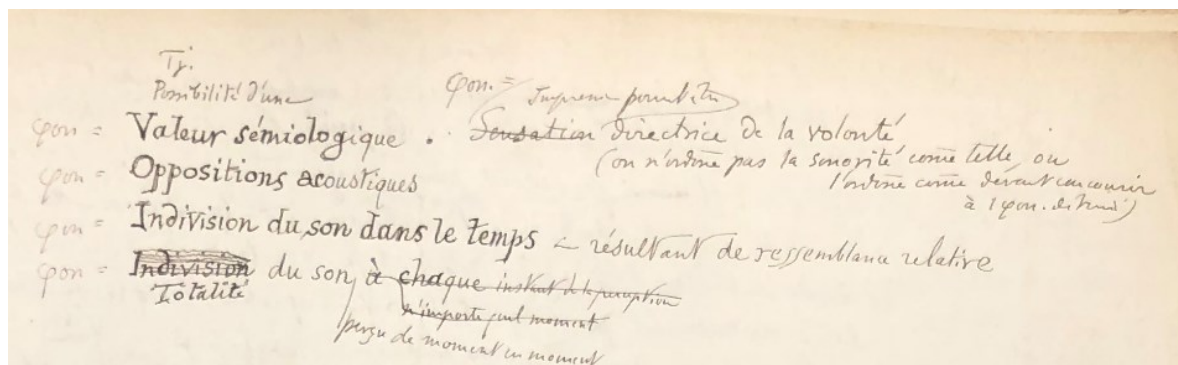 Tj.
Possibilité d'une
φon. =
φon = Valeur sémiologique . Sensation directrice de la volonté
(on n'ordonne pas la sonorité comme telle, ou
l'ordonne comme devant concourir
φon = Oppositions acoustiques
à 1 φon.
φon = Indivision du son dans le temps – résultant de ressemblance relative
φon = Indivision du son, à chaque instant de la perception
Totalité
n'importe quel moment
perçu de moment en moment